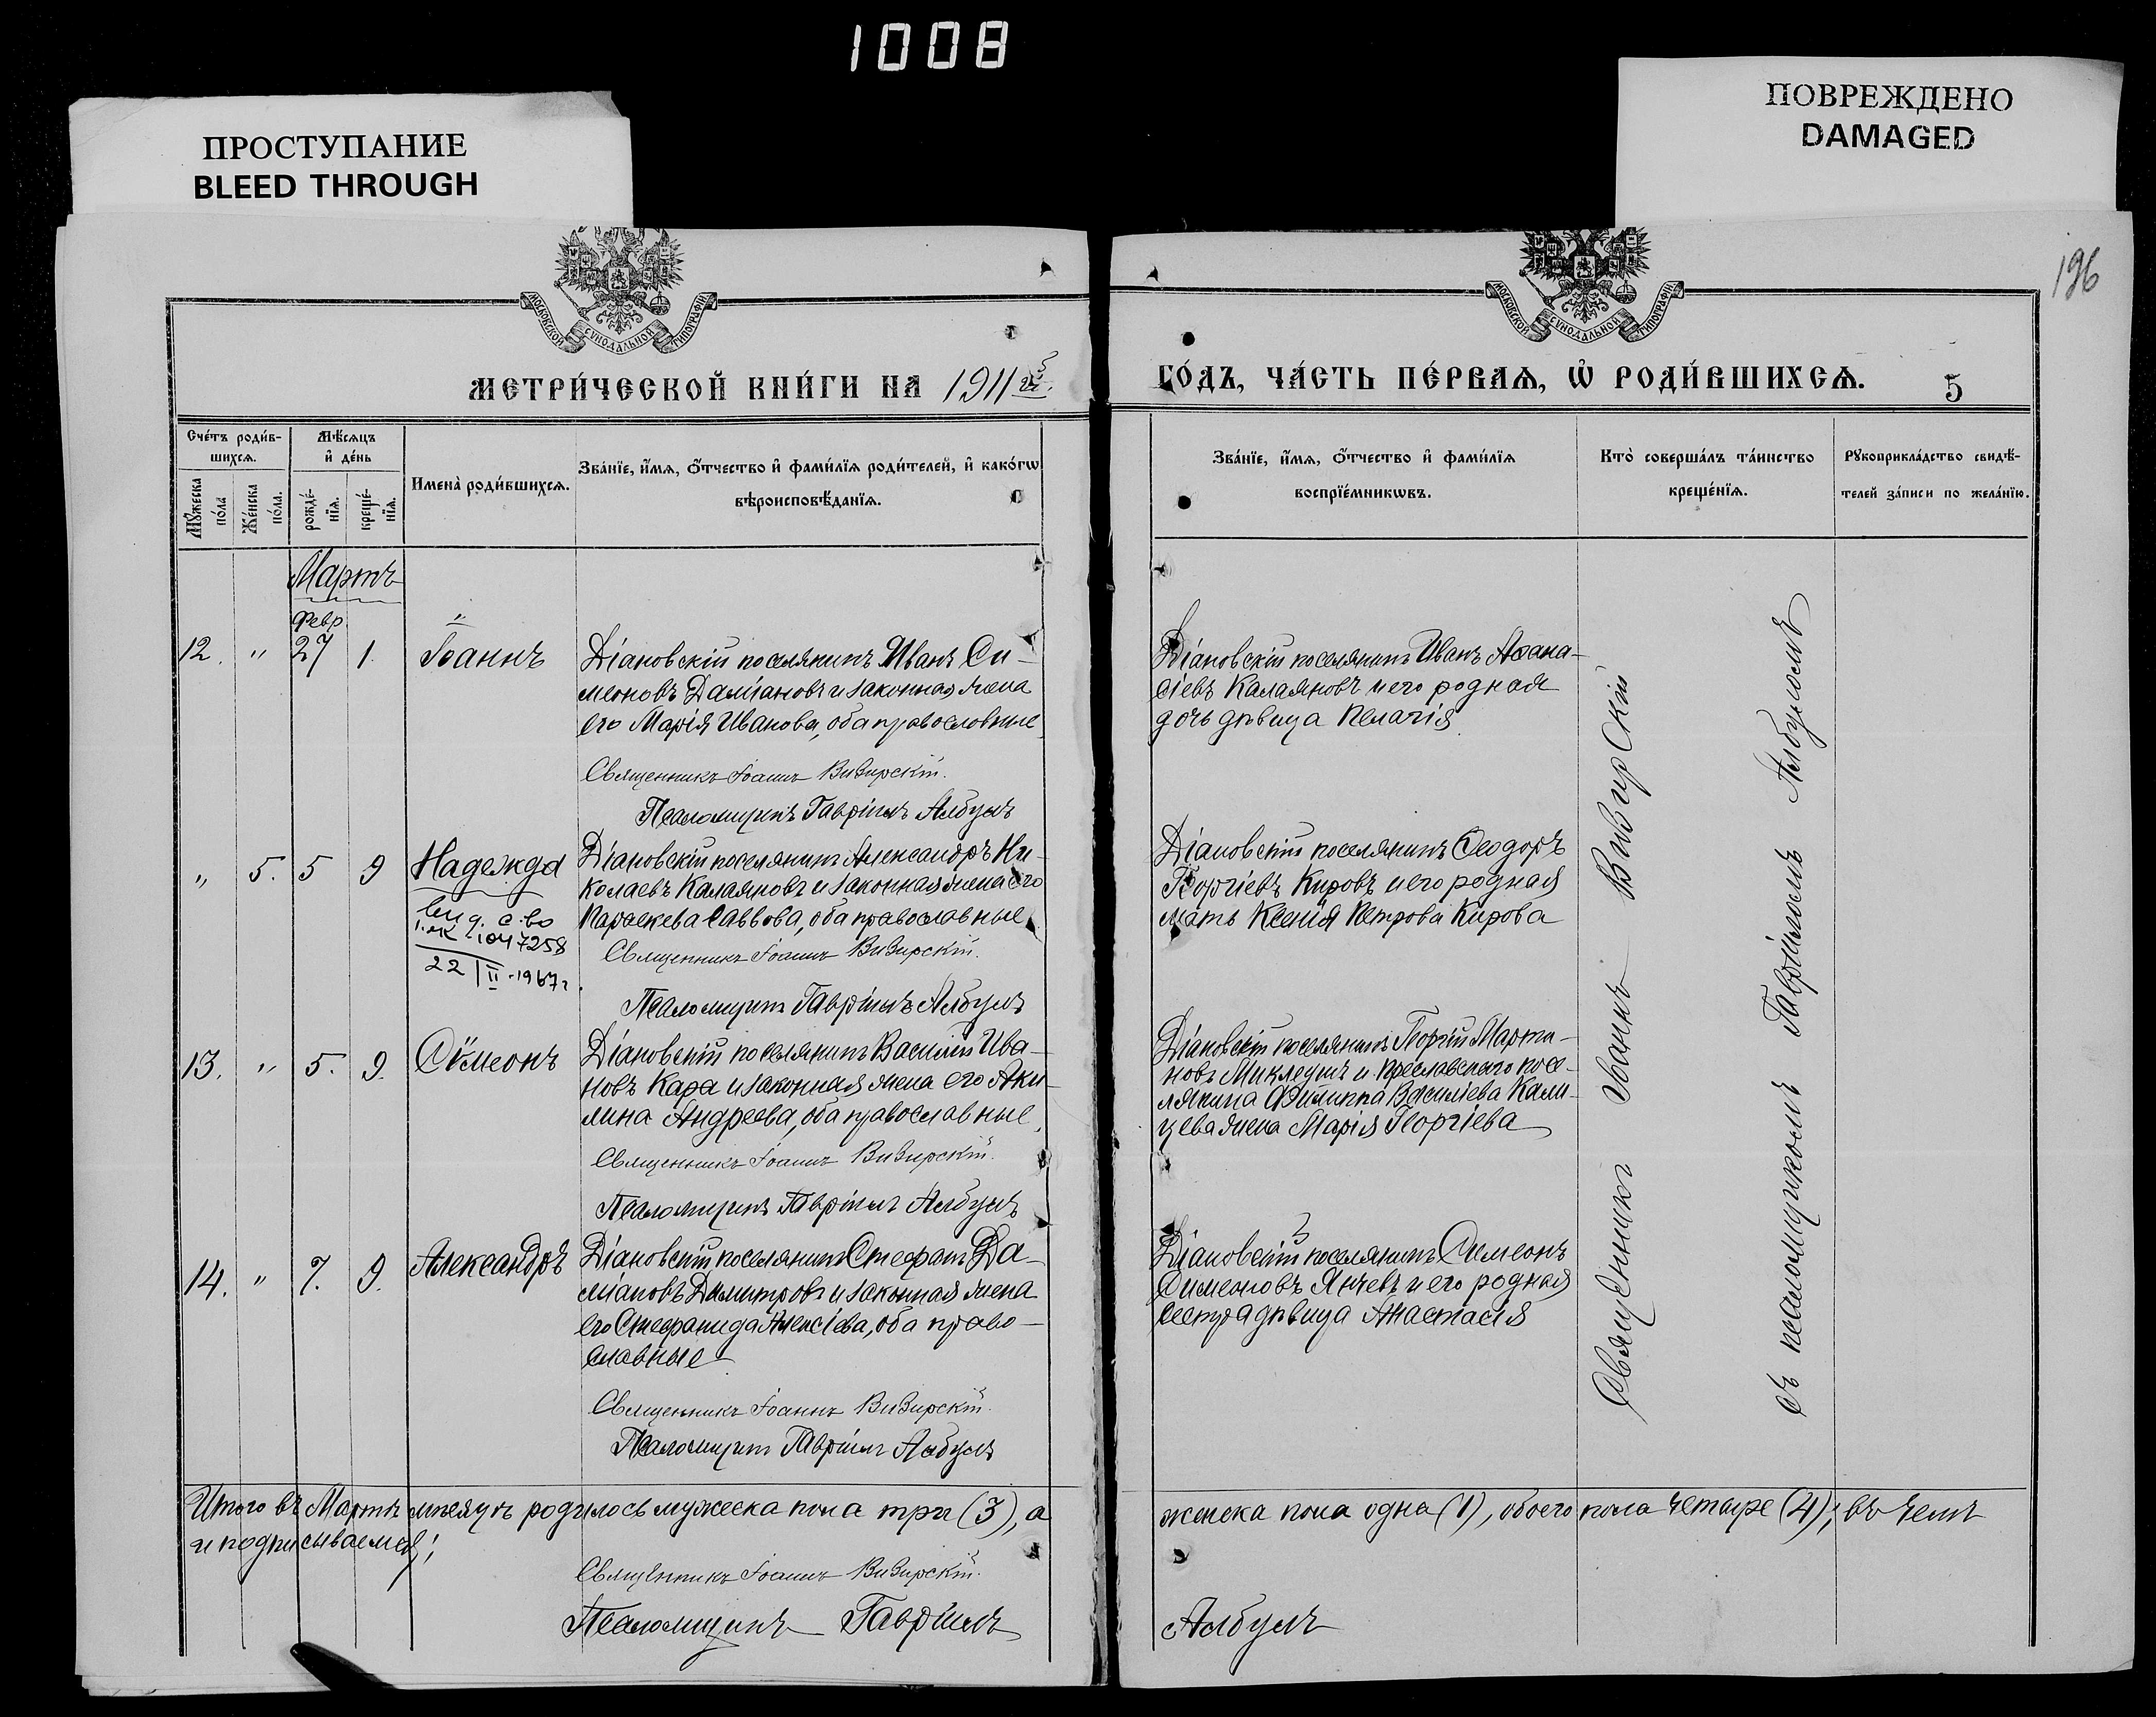 1008
ПРОСТУПАНИЕ
BLEED THROUGH
ПОВРЕЖДЕНО
DAMAGED
196
МОСКОВСКОЙ СѴНОДАЛЬНОЙ ТИПОГРАФІИ
МОСКОВСКОЙ СѴНОДАЛЬНОЙ ТИПОГРАФІИ
МЕТРИ́ЧЕСКОЙ КНИ́ГИ НА 1911й
ГО́ДЪ, ЧА́СТЬ ПЕ́РВАѦ, Ѡ҆ РОДИ́ВШИХСѦ.
5
Сче́тъ роди́в-
шихсѧ.
Мѣ́сѧцъ
и҆ де́нь
Мꙋ́жеска
по́ла
Же́нска
по́ла.
рожде́-
нїѧ.
креще́-
нїѧ.
Имена̀ роди́вшихсѧ.
Зва́нїе, и҆́мѧ, ѻ҆́тчество и҆ фами́лїѧ роди́телей, и҆ како́гѡ
вѣроисповѣ́данїѧ.
Зва́нїе, и҆́мѧ, ѻ҆́тчество и҆ фами́лїѧ
воспрїе́мникѡвъ.
Кто̀ соверша́лъ та́инство
креще́нїѧ.
Рꙋкоприкла́дство свидѣ́-
телей за́писи по жела́нїю.
Мартъ
Февр
12. " 27 1. Іоаннъ
Діановскій поселянинъ Иванъ Си-
меоновъ Даміановъ и законная жена
его Марія Иванова, оба православные
Священникъ Іоаннъ Визирскій.
Псаломщикъ Гавріилъ Албулъ
Діановскій поселянинъ Иванъ Аѳана-
сіевъ Калаяновъ и его родная
дочь дѣвица Пелагія
" 5. 5 9 Надежда
выд. с-во
1047258
22/II-1967г.
Діановскій поселянинъ Александръ Ни-
колаевъ Калаяновъ и законная жена его
Параскева Саввова, оба православные
Священникъ Іоаннъ Визирскій.
Псаломщикъ Гавріилъ Албулъ
Діановскій поселянинъ Ѳеодоръ
Георгіевъ Кировъ и его родная
мать Ксенія Петрова Кирова
13. " 5. 9. Сѵмеонъ
Діановскій поселянинъ Василій Ива-
новъ Кара и законная жена его Аки-
лина Андреева, оба православные
Священникъ Іоаннъ Визирскій.
Псаломщикъ Гавріилъ Албулъ
Діановскій поселянинъ Георгій Марти-
новъ Миклеушъ и Преславского посе-
лянина Филиппа Василіева Кали-
цева жена Марія Георгіева
14. " 7. 9. Александръ
Діановскій поселянинъ Стефанъ Да-
міановъ Димитровъ и законная жена
его Стефанида Алексіева, оба право-
славные
Священникъ Іоаннъ Визирскій.
Псаломщикъ Гавріилъ Албулъ
Діановскій поселянинъ Симеонъ
Симеоновъ Янчевъ и его родная
сестра дѣвица Анастасія
Священникъ Іоаннъ Визирскій
съ псаломщикомъ Гавріиломъ Албуломъ
Итого въ Мартѣ мѣсяцѣ родилось мужеска пола три (3), а
женска пола одна (1), обоего пола четыре (4); въ чемъ
и подписываемся;
Священникъ Іоаннъ Визирскій.
Псаломщикъ Гавріилъ
Албулъ